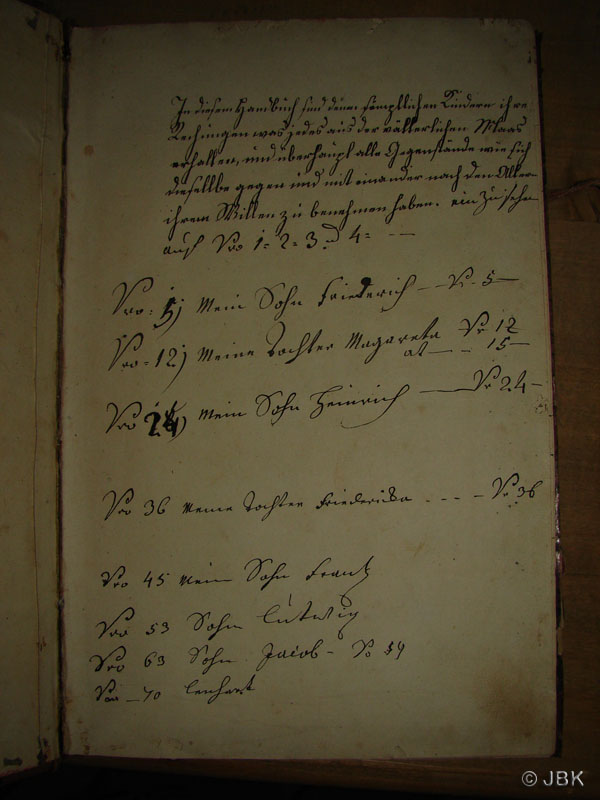 In diesem Handbuch sind denen sämptlichen Kindern ihre
Rechnungen was jedes aus der vätterlichen Maas
erhalten, und überhaupt alle Gegenstände wie sich
dieselbe gegen und mit einander nach den Alter
ihrem Willen zu benehmen haben. ein zu sehn
auf Nro 1= 2= 3 d 4=
Nro = 5) Mein Sohn Friederich — No - 5 —
Nro = 12) Meine Tochter Magareta No 12
at — 15 —
Nro 24) Mein Sohn Heinrich — No 24 —
Nro 36 Meine Tochter Friedericka - - - - No 36
Nro 45 Mein Sohn Frantz
Nro 53 Sohn Ludwig
Nro 63 Sohn Jacob - No 59
Nro — 70 Lenhart
© JBK